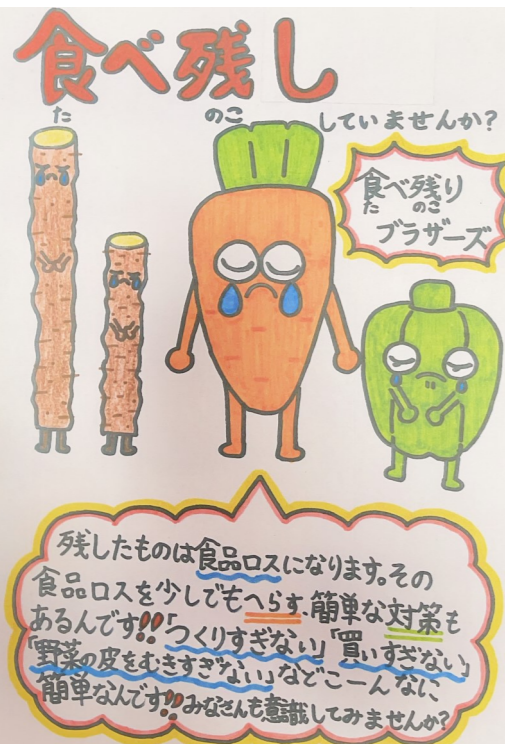 食べ残し
た のこ
していませんか?
食べ残り
た のこ
ブラザーズ
残したものは食品ロスになります。その
食品ロスを少しでもへらす、簡単な対策も
あるんです!!「つくりすぎない」「買いすぎない」
「野菜の皮をむきすぎない」などこーんなに
簡単なんです!!みなさんも意識してみませんか?